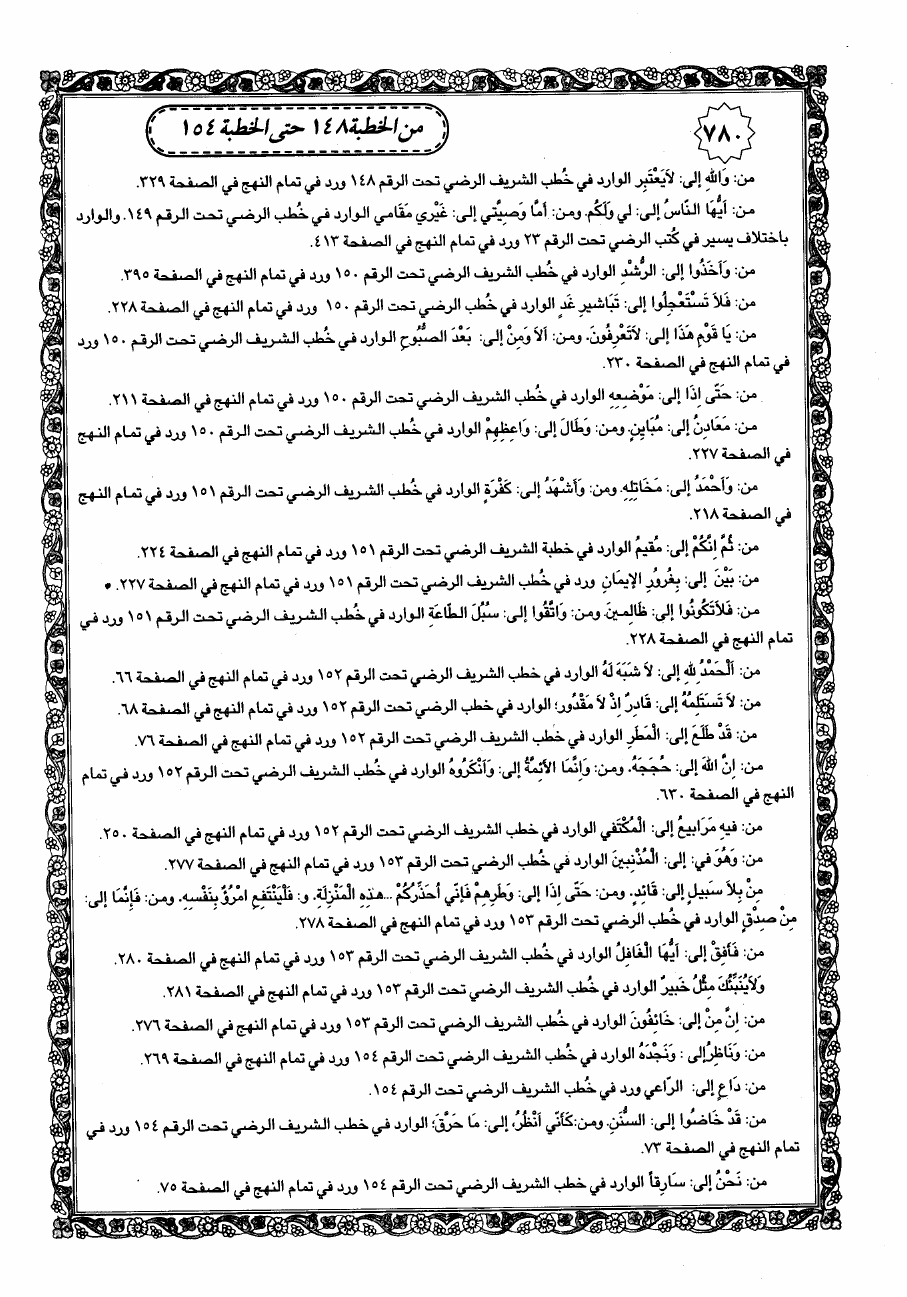 ٧٨٠
من الخطبة ١٤٨ حتى الخطبة ١٥٤
من: وَاللهِ إلى: لاَيَعْتَبِر الوارد في خُطب الشريف الرضي تحت الرقم ١٤٨ ورد في تمام النهج في الصفحة ٣٢٩.
من: أَيُّهَا النَّاسُ إلى: لي وَلَكُم. ومن: أَمَّا وَصِيَّتي إلى: غَيْري مَقَامي الوارد في خُطب الرضي تحت الرقم ١٤٩. والوارد
باختلاف يسير في كُتب الرضي تحت الرقم ٢٣ ورد في تمام النهج في الصفحة ٤١٣.
من: وَأَخَذُوا إلى: الرُّشْدِ الوارد في خُطب الشريف الرضي تحت الرقم ١٥٠ ورد في تمام النهج في الصفحة ٣٩٥.
من: فَلاَ تَسْتَعْجِلُوا إلى: تَبَاشيرِ غَدٍ الوارد في خُطب الرضي تحت الرقم ١٥٠ ورد في تمام النهج في الصفحة ٢٢٨.
من: يَا قَوْمِ هَذَا إلى: لاَتَعْرِفُونَ. ومن: أَلاَ وَمِنْ إلى: بَعْدَ الصَّبُوحِ الوارد في خُطب الشريف الرضي تحت الرقم ١٥٠ ورد
في تمام النهج في الصفحة ٢٣٠.
من: حَتَّى إِذَا إلى: مَوْضِعِهِ الوارد في خُطب الشريف الرضي تحت الرقم ١٥٠ ورد في تمام النهج في الصفحة ٢١١.
من: مَعَادِنُ إلى: مُبَاينٍ. ومن: وَطَالَ إلى: وَاعِظِهِمْ الوارد في خُطب الشريف الرضي تحت الرقم ١٥٠ ورد في تمام النهج
في الصفحة ٢٢٧.
من: وَأَحْمَدُ إلى: مَخَاتِلِهِ. ومن: وَأَشْهَدُ إلى: كَفْرَةٍ الوارد في خُطب الشريف الرضي تحت الرقم ١٥١ ورد في تمام النهج
في الصفحة ٢١٨.
من: ثُمَّ إِنَّكُمْ إلى: مُقيمُ الوارد في خطبة الشريف الرضي تحت الرقم ١٥١ ورد في تمام النهج في الصفحة ٢٢٤.
من: بَيْنَ إلى: بِغُرُورِ الإيمَانِ ورد في خُطب الشريف الرضي تحت الرقم ١٥١ ورد في تمام النهج في الصفحة ٢٢٧.
من: فَلاَتَكُونُوا إلى: ظَالِمينَ. ومن: وَاتَّقُوا إلى: سُبُلَ الطَّاعَةِ الوارد في خُطب الشريف الرضي تحت الرقم ١٥١ ورد في
تمام النهج في الصفحة ٢٢٨.
من: اَلْحَمْدُ لله إلى: لاَ شَبَهَ لَهُ الوارد في خطب الشريف الرضي تحت الرقم ١٥٢ ورد في تمام النهج في الصفحة ٦٦.
من: لاَ تَسْتَلِمُهُ إلى: قَادِرٌ إِذْ لاَ مَقْدُور؛ الوارد في خطب الرضي تحت الرقم ١٥٢ ورد في تمام النهج في الصفحة ٦٨.
من: قَدْ طَلَعَ إلى: الْمَطَر الوارد في خطب الشريف الرضي تحت الرقم ١٥٢ ورد في تمام النهج في الصفحة ٧٦.
من: إِنَّ اللهَ إلى: حُجَجَهُ. ومن: وَإِنَّمَا الأَئِمَّةُ إلى: وَأَنْكَرُوهُ الوارد في خُطب الشريف الرضي تحت الرقم ١٥٢ ورد في تمام
النهج في الصفحة ٦٣٠.
من: فيهِ مَرَابيعُ إلى: الْمُكْتَفي الوارد في خطب الشريف الرضي تحت الرقم ١٥٢ ورد في تمام النهج في الصفحة ٢٥٠.
من: وَهُوَ في: إلى: الْمُذْنِبينَ الوارد في خُطب الرضي تحت الرقم ١٥٣ ورد في تمام النهج في الصفحة ٢٧٧.
مِنْ بِلاَ سَبيلٍ إلى: قَائِدٍ. ومن: حَتَّى إِذَا إلى: وَطَرِهِمْ فَإِنّي أُحَذِّرُكُمْ ...هذِهِ الْمَنْزِلَةِ. و: فَلْيَنْتَفِعِ امْرُؤٌ بِنَفْسِهِ. ومن: فَإِنَّمَا إلى:
مِنْ صِدْقٍ الوارد في خُطب الرضي تحت الرقم ١٥٣ ورد في تمام النهج في الصفحة ٢٧٨.
من: فَأَفِقْ إلى: أَيُّهَا الْغَافِلُ الوارد في خُطب الشريف الرضي تحت الرقم ١٥٣ ورد في تمام النهج في الصفحة ٢٨٠.
وَلاَيُنَبِّئُكَ مِثْلُ خَبيرٌ الوارد في خُطب الشريف الرضي تحت الرقم ١٥٣ ورد في تمام النهج في الصفحة ٢٨١.
من: إِنَّ مِنْ إلى: خَائِفُونَ الوارد في خطب الشريف الرضي تحت الرقم ١٥٣ ورد في تمام النهج في الصفحة ٢٧٦.
من: وَنَاظِرُ إلى : وَنَجْدَهُ الوارد في خُطب الشريف الرضي تحت الرقم ١٥٤ ورد في تمام النهج في الصفحة ٢٦٩.
من: دَاعٍ إلى: الرّاعي ورد في خُطب الشريف الرضي تحت الرقم ١٥٤.
من: قَدْ خَاضُوا إلى: السُّنَنِ. ومن:كَأَنّي أَنْظُرُ، إلى: مَا حَرَّقَ؛ الوارد في خطب الشريف الرضي تحت الرقم ١٥٤ ورد في
تمام النهج في الصفحة ٧٣.
من: نَحْنُ إلى: سَارِقاً الوارد في خطب الشريف الرضي تحت الرقم ١٥٤ ورد في تمام النهج في الصفحة ٧٥.